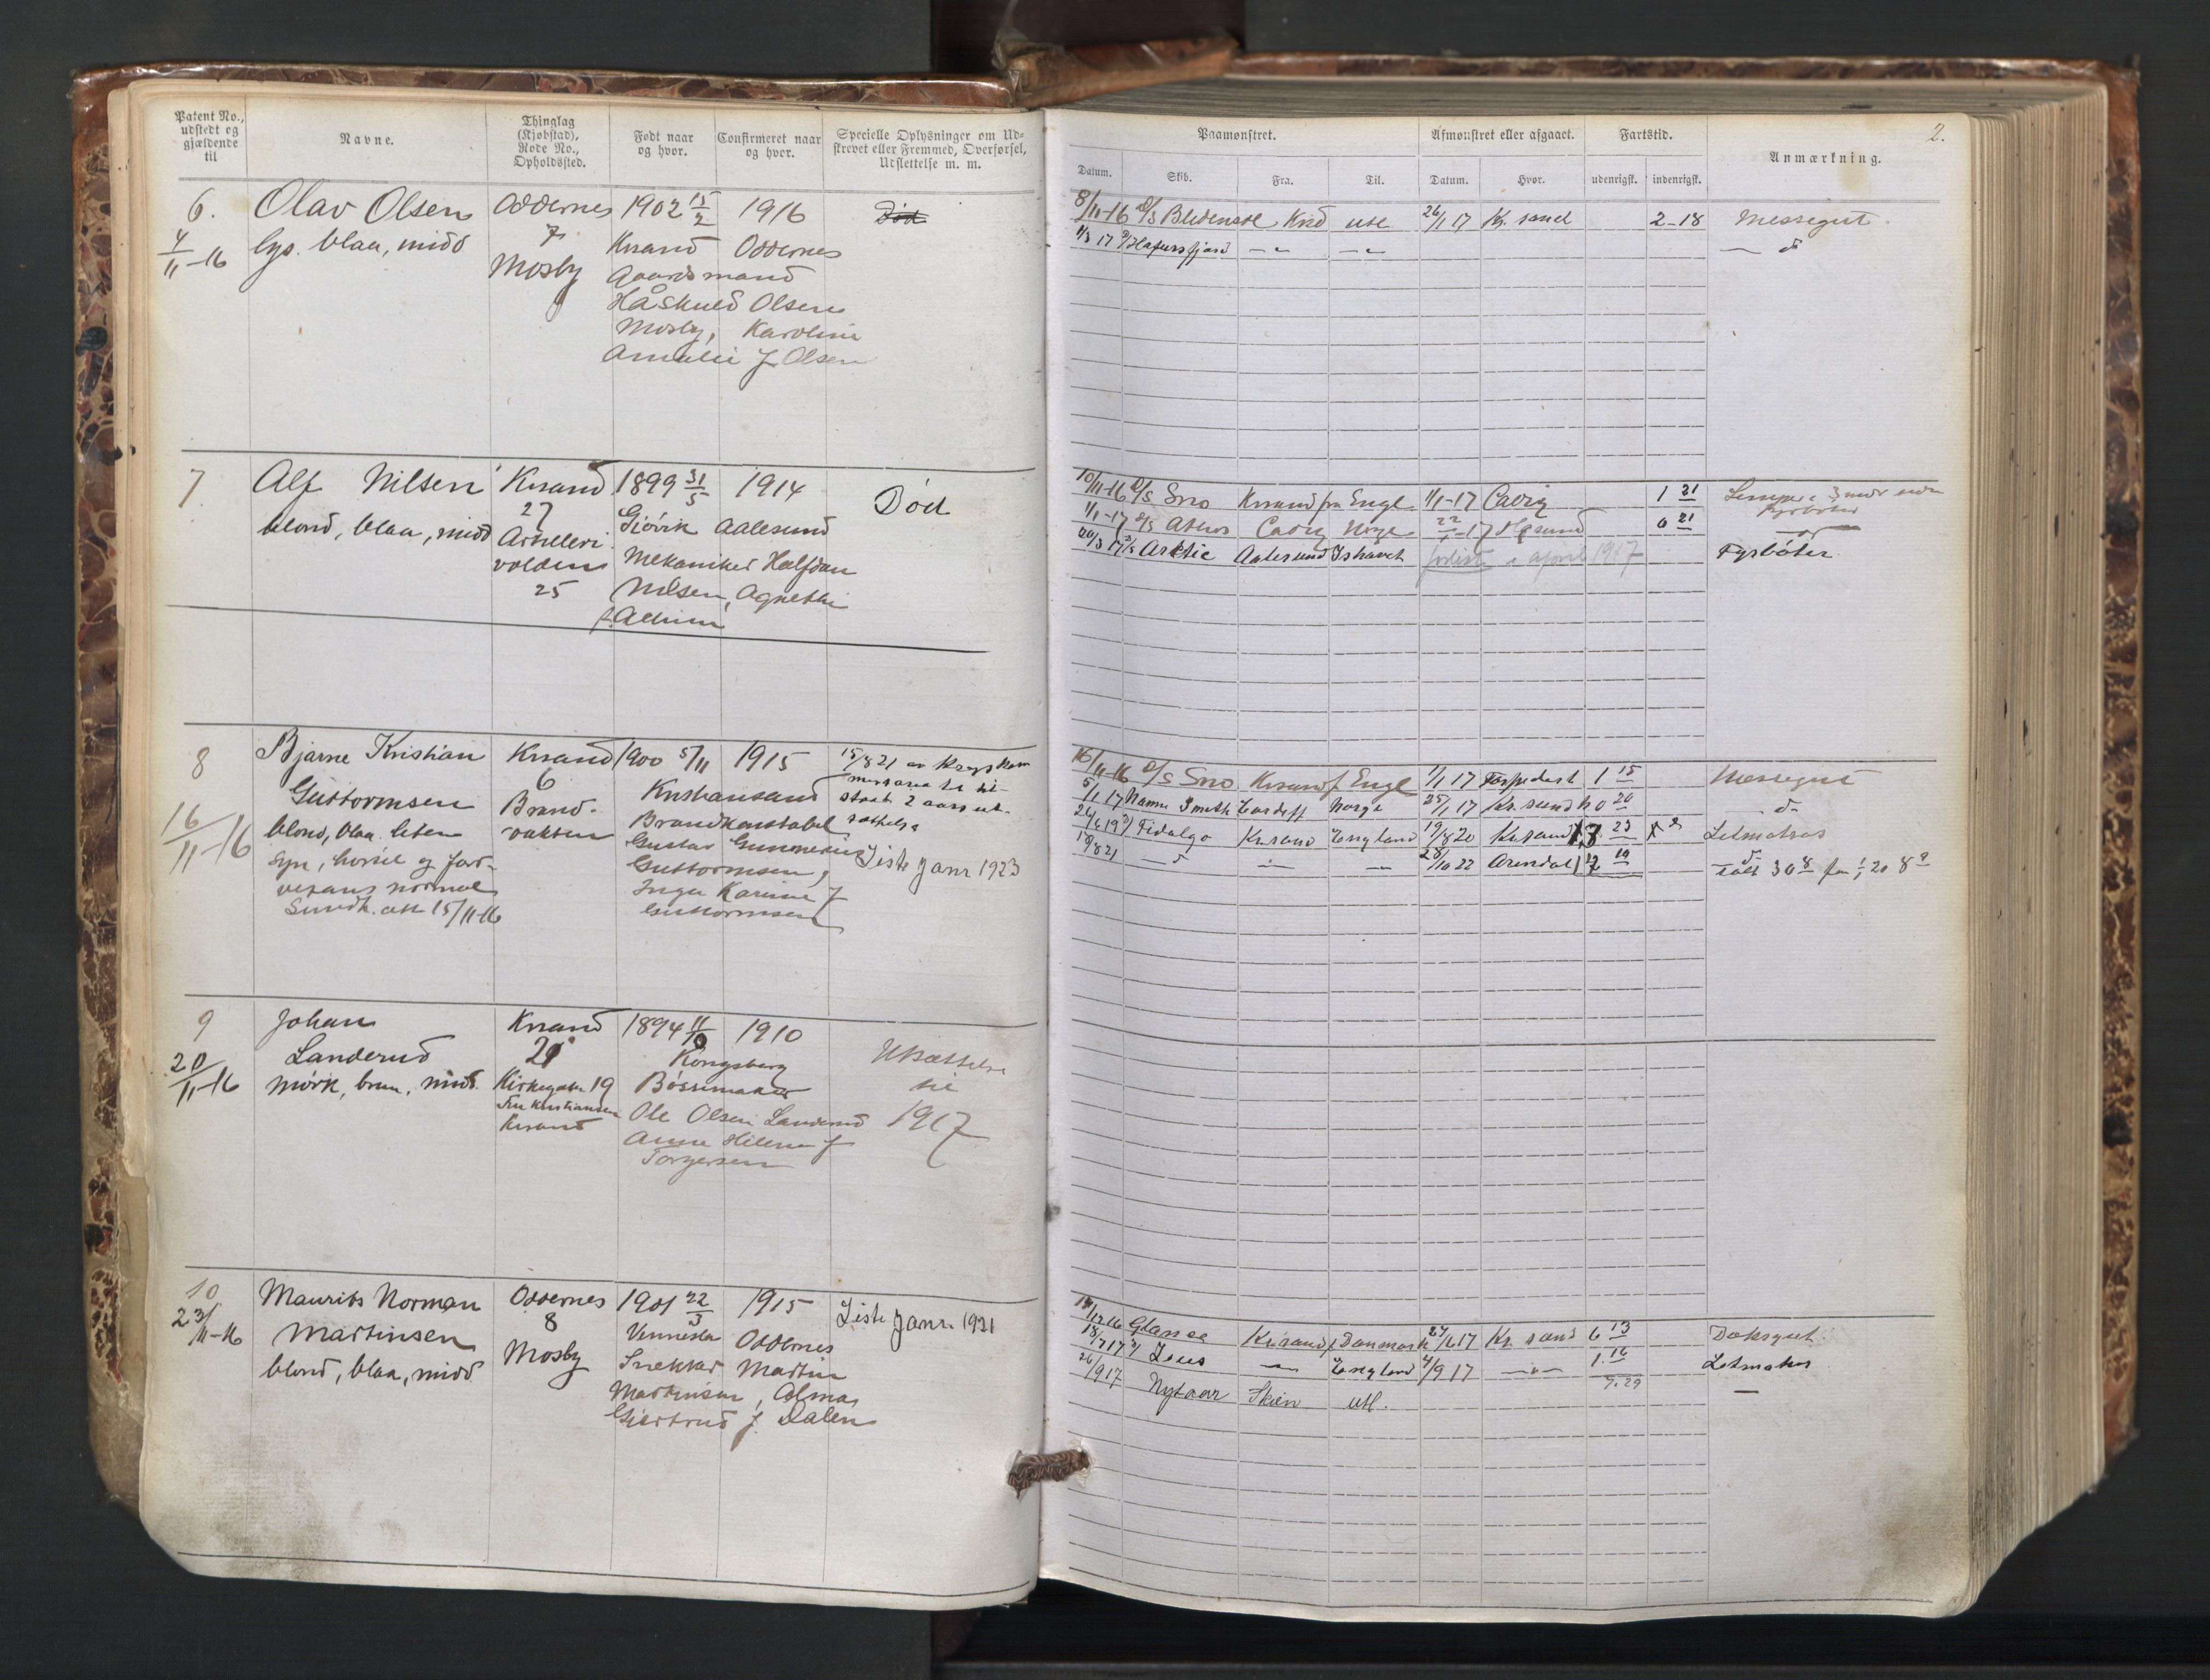 Patent No.,
udstedt og
gjældende
til
Navne.
Thinglag
(Kjøbstad),
Rode No.,
Opholdssted.
Født naar
og hvor.
Confirmeret naar
og hvor.
Specielle Oplysninger om Ud-
skrevet eller Fremmed, Overførsel,
Udslettelse m. m.
6.
4/11-16
Olav Olsen
lys. blaa, midd
Oddernes
7
Mosby
1902 15/2
Krsand
1916
Oddernes
Gaardsmand
Håskuld Olsen
Mosby, Karoline
Amalie f Olsen
Død
7
Alf Nilsen
blond, blaa, midd
Krsand
27
Artilleri
volden
25
1899 31/5
Gjøvik
1914
Aalesund
Mekaniker Halfdan
Nilsen, Agnethe
Død
8
16/11-16
Bjarne Kristian
Guttormsen
blond, blaa liten
Syn, hørsel og far-
vesans normal
Sundh. att 15/11-16
Krsand
6
Brand-
vakten
1900 5/11
1915
Kristiansand
Brandkonstabel
Gustav Gunnerius
Guttormsen,
Inga Karine f
Guttormsen
15/8 21 av Krigskom
2 aars ut-
sættelse
Liste Janr 1923
9
20/11-16
Johan
Landerud
mørk, brun, midd.
Krsand
21
Kirkegaten 19
Fru Kristiansen
Krsand
1894 11/10
1910
Kongsberg
Bøssemaker
Ole Olsen Landerud
Anne Helene f
Torgersen
Utsættelse
til
1917
10
23/11-16
Maurits Norman
Martinsen
blond, blaa, midd.
Oddernes
8
Mosby
1901 22/3
Vennesla
1915
Oddernes
Snekker Martin
Martinsen, Alma
Gjertrud f. Dalen
Liste Janr. 1921
2.
Paamønstret.
Afmønstret eller afgaaet.
Fartstid.
Anmærkning.
Datum.
Skib.
Fra.
Til.
Datum.
Hvor.
udenrigsk.
indenrigsk.
8/11-16 D/S Krsd utl 26/1 17 Kr. sand 2-18 Messegut.
1/3 17 D/S Hafursfjord
10/11-16 D/S Sno Krsand fra Engl 1/1-17 Cadiz 1 21
1/1-17 D/S Athos Cadiz Norge 22/-17 0 21
20/3 17 D/S Arktic Aalesund Ishavet forlist i april 1917 Fyrbøter
16/11-16 D/S Sno Krsand f Engl 1/1 17 Torpedert 1 15 Messegut
5/1 17 Nanna Smith Cardiff Norge 25/1 17 Kr.sand 0 20 d
26/6 19 Fidalgo Kr.sand England 19/8 20 Kr.sand 23 Letmatros
19/8 21 28/10 22 Arendal
14/12 16 Kr.sand f Danmark 27/6 17 Kr. sand 6 13 Dæksgut
18/7 17 Zeus England 4/9 17 1.16 Letmatros
7.29
26/9 17 Nytaar Skien utl.